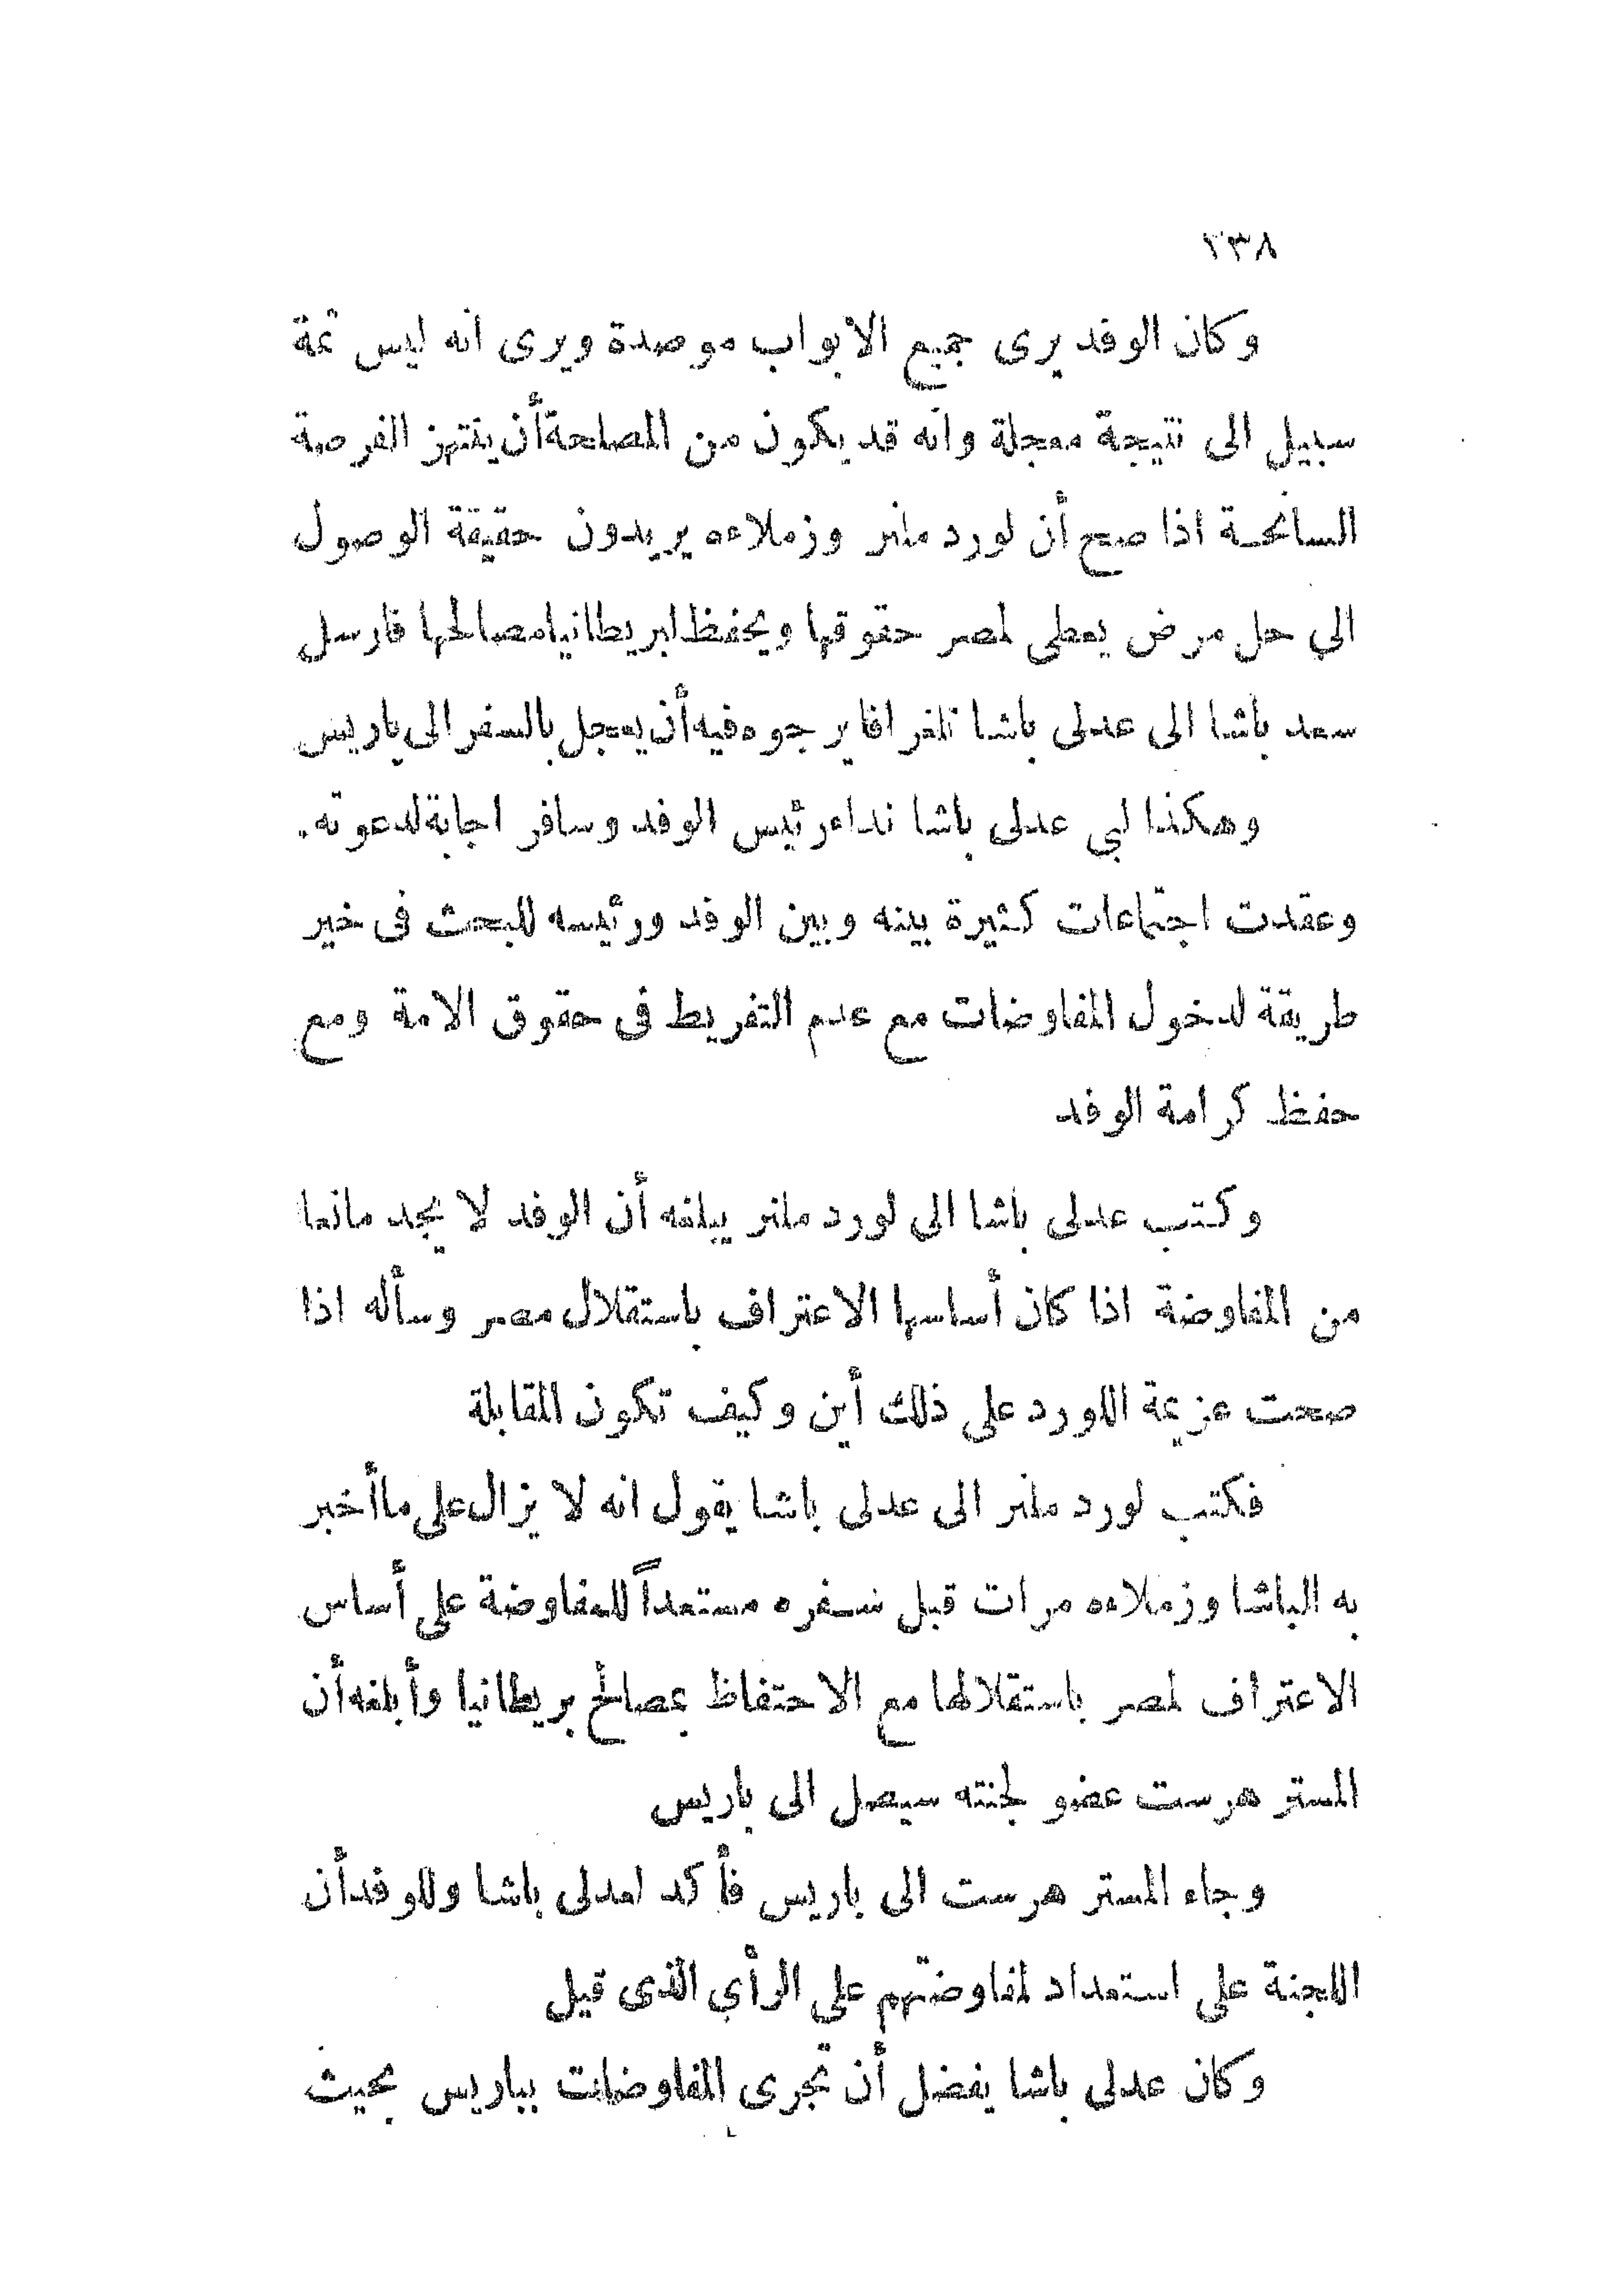 ٢٣٨
وكان الوفد يرى جميع الابواب موصدة ويرى انه ليس ثمة
سبيل الى نتيجة معجلة وانه قد يكون من المصلحة أن ينتهز الفرصة
السانحة اذا صح أن لورد ملنر وزملاءه يريدون حقيقة الوصول
الي حل مرض يعطى لمصر حقوقها ويحفظ لبريطانيا مصالحها فارسل
سعد باشا الى عدلى باشا تلغرافا يرجوه فيه أن يعجل بالسفر الى باريس
وهكذا لبي عدلى باشا نداء رئيس الوفد وسافر اجابة لدعوته .
وعقدت اجتماعات كثيرة بينه وبين الوفد ورئيسه للبحث فى خير
طريقة لدخول المفاوضات مع عدم التفريط فى حقوق الامة ومع
حفظ كرامة الوفد
وكتب عدلى باشا الى لورد ملنر يبلغه أن الوفد لا يجد مانعا
من المفاوضة اذا كان أساسها الاعتراف باستقلال مصر وسأله اذا
صحت عزيمة اللورد على ذلك أين وكيف تكون المقابلة
فكتب لورد ملنر الى عدلى باشا يقول انه لا يزال على ما أخبر
به الباشا وزملاءه مرات قبل سفره مستعداً للمفاوضة على أساس
الاعتراف لمصر باستقلالها مع الاحتفاظ بمصالح بريطانيا وأبلغه أن
المستر هرست عضو لجنته سيصل الى باريس
وجاء المستر هرست الى باريس فأكد لعدلى باشا وللوفد أن
اللجنة على استعداد لمفاوضتهم على الرأي الذى قيل
وكان عدلى باشا يفضل أن تجرى المفاوضات بباريس بحيث